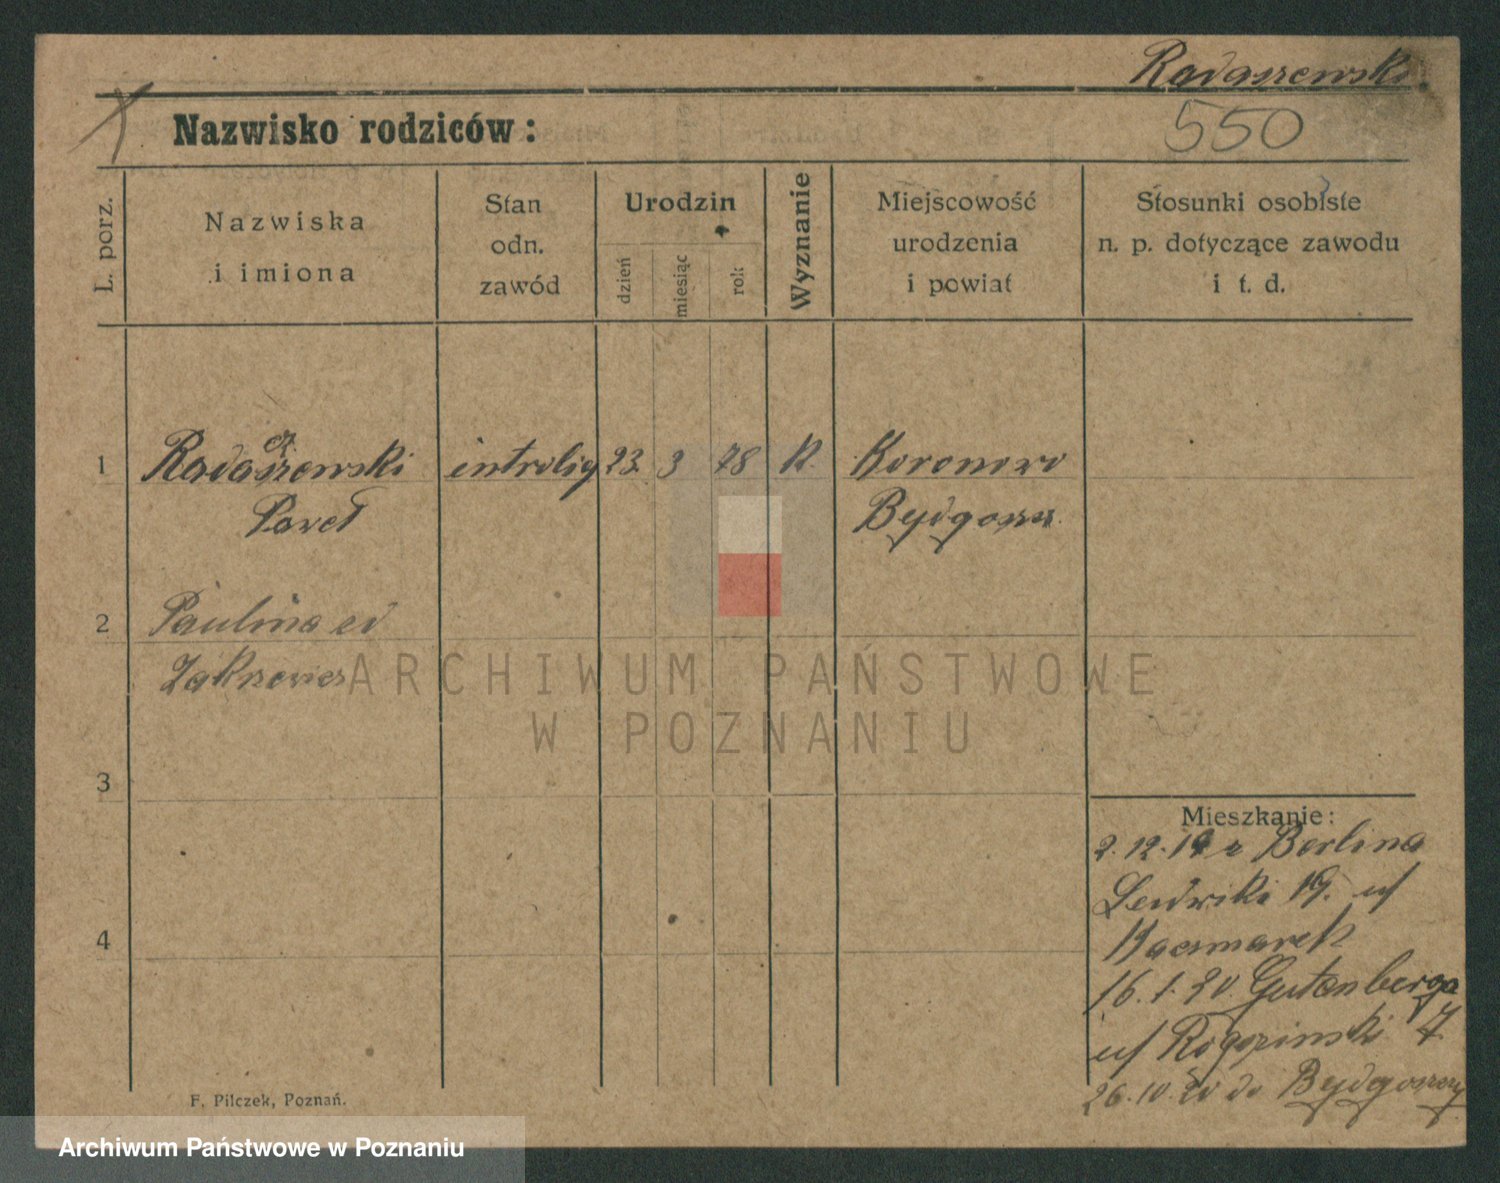 Radaszewski
550
Nazwisko rodziców:
L. porz.
Nazwiska
i imiona
Stan
odn.
zawód
Urodzin
dzień
miesiąc
rok
Wyznanie
Miejscowość
urodzenia
i powiat
Stosunki osobiste
n. p. dotyczące zawodu
i t. d.
1
Radaszewski
cz
introlig
23.
3
78
K.
Koronowo
Paweł
Bydgoszcz.
2
Paulina
ARCHIWUM PAŃSTWOWE
W POZNANIU
3
Mieszkanie:
2.12.19 z Berlina
19.
4
Kaczmarek
16.1.20 Gutenberga
Rogoziński 7.
26.10.20 do Bydgoszczy
F. Pilczek, Poznań.
Archiwum Państwowe w Poznaniu